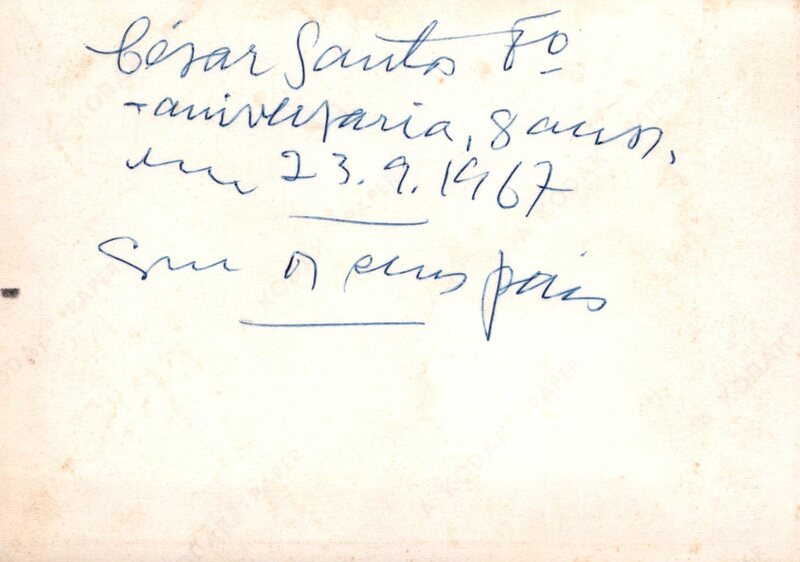 César Santos Fº
aniversaria, 8 anos,
em 23.9.1967
Com os seus pais
KODAK PAPER